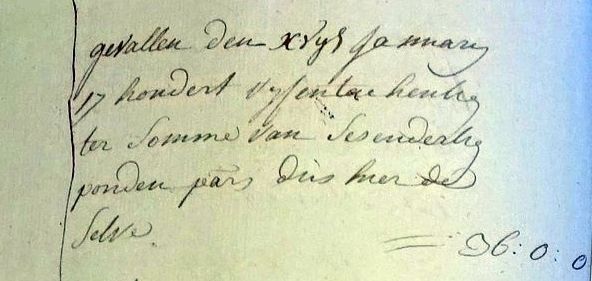 gevallen den xvyę January
17 hondert vyfentachentig
ter Somme van Sesendertig
ponden pars dus hier de
Selve
= 36: 0: 0